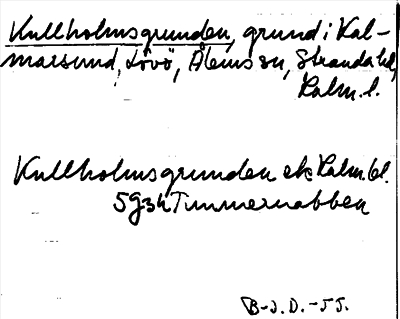 Kullholmsgrunden, grund i Kal-
marsund, Lövö, Ålems sn, Stranda hd,
Kalm. l.
Kullholmsgrunden ek Kalm. bl.
5G3h Timmernabben
B-J.D.-55.